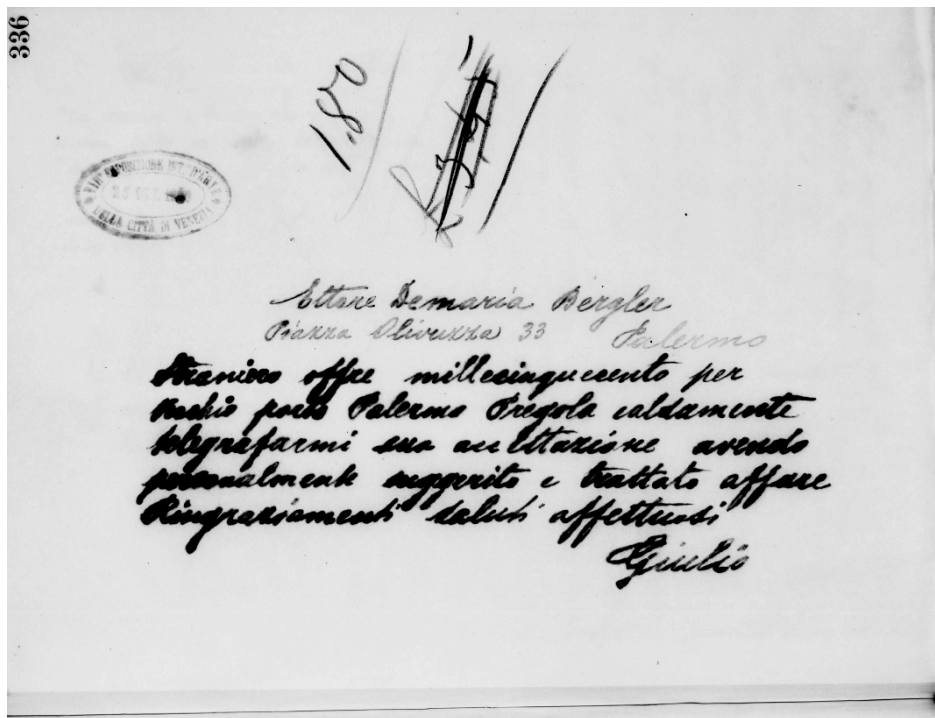 336
1.80
ESPOSIZIONE INT. D'ARTE
DELLA CITTÀ DI VENEZIA
Ettore Demaria Bergler
Piazza Olivuzza 33 Palermo
Straniero offre millecinquecento per
Vecchio porto Palermo Pregola caldamente
telegrafarmi sua accettazione avendo
personalmente suggerito e trattato affare
Ringraziamenti saluti affettuosi
Giulio